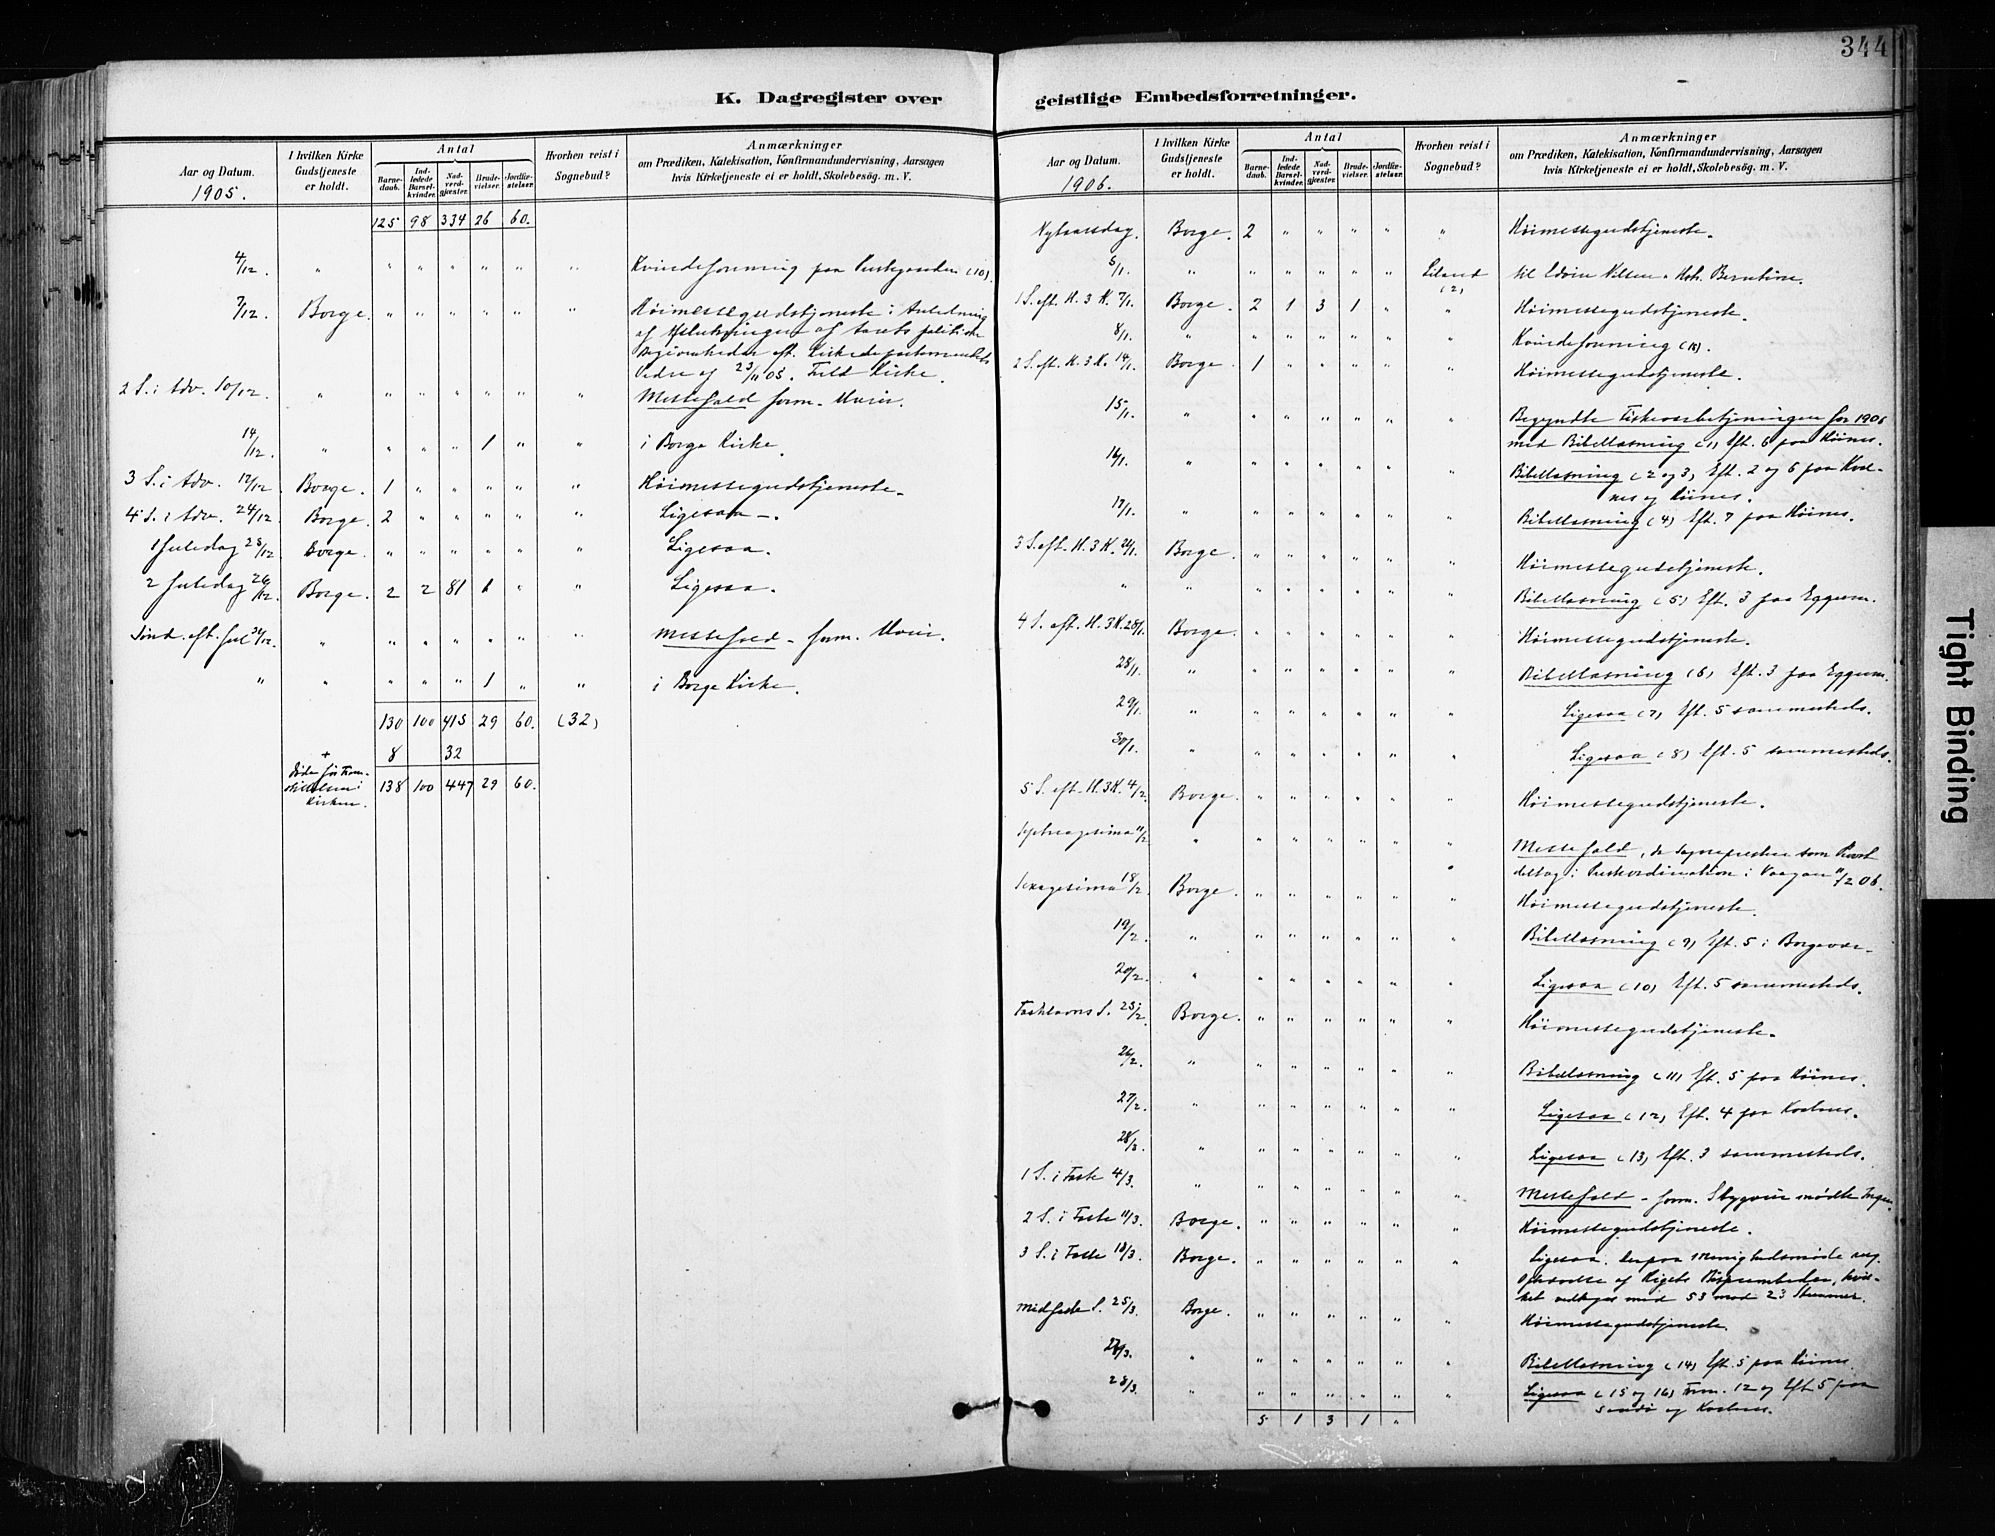 344
K. Dagregister over
Aar og Datum.
1905.
I hvilken Kirke Gudstjeneste er holdt.
Antal
Barnedaab.
Indledede Barselkvinder.
Nadverdgjæster.
Brudevielser.
Jordfæstelser.
Hvorhen reist i Sognebud?
Anmærkninger
om Prædiken, Katekisation, Konfirmandundervisning, Aarsagen
hvis Kirketjeneste ei er holdt, Skolebesøg. m. V.
125 98 334 26 60.
4/12. " " " " " " " Kvindeforening paa (10).
7/12. Borge. " " " " " " Høimessegudstjeneste i Anledning
af af Aarets politiske
Begivenheder eft. Kirkedepartementets
af 23/11 05. Fuld Kirke.
2 S. i Adv. 10/12. " " " " " " " Messefald form. Uveir.
14/12. " " " " 1 " " i Borge Kirke.
3 S. i Adv. 17/12. Borge. 1 " " " " " Høimessegudstjeneste.
4 S. i Adv. 24/12. Borge. 2 " " " " " Ligesaa.
1 Juledag 25/12. Borge. " " " " " " Ligesaa.
2 Juledag 26/12. Borge. 2 2 81 1 " " Ligesaa.
Sønd. eft. Jul 31/12. " " " " " " " Messefald - form. Uveir.
" " " " " 1 " " i Borge Kirke.
130 100 415 29 60. (32)
+ 8 32
Døde før Frem-
stillelsen i
Kirken.
138 100 447 29 60.
geistlige Embedsforretninger.
Aar og Datum.
1906.
I hvilken Kirke Gudstjeneste er holdt.
Antal
Barnedaab.
Indledede Barselkvinder.
Nadverdgjæster.
Brudevielser.
Jordfæstelser.
Hvorhen reist i Sognebud?
Anmærkninger
om Prædiken, Katekisation, Konfirmandundervisning, Aarsagen
hvis Kirketjeneste ei er holdt, Skolebesøg. m. V.
Nytaarsdag. Borge. 2 " " " " " Høimessegudstjeneste.
5/1. " " " " " " (2) til Nilsen
1 S. eft. H. 3 K. 7/1. Borge. 2 1 3 1 " " Høimessegudstjeneste.
8/1. " " " " " " " Kvindeforening
2 S. eft. H. 3 K. 14/1. Borge. 1 " " " " " Høimessegudstjeneste.
15/1. " " " " " " " Begyndte Fiskeværbetjeningen for 1906
med Bibellæsning (1) Eft. 6 paa Høines.
16/1. " " " " " " " Bibellæsning (2 og 3) Eft. 2 og 6 paa Kval-
nes og Høines.
17/1. " " " " " " " Bibellæsning (4) Eft. 7 paa Høines.
3 S. eft. H. 3 K. 21/1. Borge. " " " " " " Høimessegudstjeneste.
" " " " " " " " Bibellæsning (5) Eft. 3 paa Eggum.
4 S. eft. H. 3 K. 28/1. Borge. " " " " " " Høimessegudstjeneste.
28/1. " " " " " " " Bibellæsning (6) Eft. 3 paa Eggum.
29/1. " " " " " " " Ligesaa (7) Eft. 5 sammesteds.
30/1. " " " " " " " Ligesaa (8) Eft. 5 sammesteds.
5 S. eft. H. 3 K. 4/2. Borge. " " " " " " Høimessegudstjeneste.
Septuagesima 11/2. " " " " " " " Messefald, da Sognepresten som Provst
deltog i i Vaagan 11/2 06.
Sexagesima 18/2. Borge. " " " " " " Høimessegudstjeneste.
19/2. " " " " " " " Bibellæsning (9) Eft. 5 i Borgevær.
20/2. " " " " " " " Ligesaa (10) Eft. 5 sammesteds.
Fastelavns S. 25/2. Borge. " " " " " " Høimessegudstjeneste.
26/2. " " " " " " " Bibellæsning (11) Eft. 5 paa Høines.
27/2. " " " " " " " Ligesaa (12) Eft. 4 paa Kvalnes.
28/3. " " " " " " " Ligesaa (13) Eft. 3 sammesteds.
1 S. i Faste 4/3. " " " " " " " Messefald - form. Stygveir mødte Ingen.
2 S. i Faste 11/3. Borge. " " " " " " Høimessegudstjeneste.
3 S. i Faste 18/3. Borge. " " " " " " Ligesaa. Derpaa Menighedsmøde
af Rigets hvil-
ket vedtoges med 53 mod 23 Stemmer.
Midfaste S. 25/3. Borge. " " " " " " Høimessegudstjeneste.
27/3. " " " " " " " Bibellæsning (14) Eft. 5 paa Høines.
28/3. " " " " " " " Ligesaa (15 og 16) Form. 12 og Eft 5 paa
og Kvalnes.
5 1 3 1 "
Tight Binding